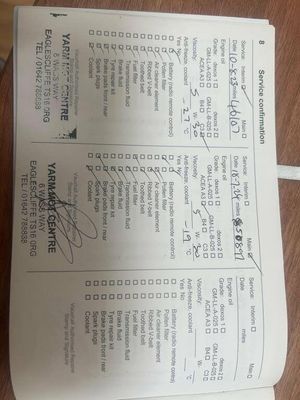 8 Service confirmation
Service: Interim Main
Date
Engine oil
Grade: dexos 1 dexos 2
GM-LL-A-025 GM-LL-B-025
ACEA A3 B4 C3
Viscosity: 5 W- 30
Anti-freeze, coolant -27 °C
Yes No
Battery (radio remote control)
Pollen filter
Air cleaner element
Ribbed V-belt
Toothed belt
Fuel filter
Transmission fluid
Tyre repair kit
Brake fluid
Brake pads front / rear
Spark plugs
Coolant
Vauxhall Authorised Repairer
Stamp and Signature
YARM MOT CENTRE
EAGLESCLIFFE TS16 0RG
Service: Interim Main
Date
Engine oil
Grade: dexos 1 dexos 2
GM-LL-A-025 GM-LL-B-025
ACEA A3 B4 C3
Viscosity: 5 W- 30
Anti-freeze, coolant -19 °C
Yes No
Battery (radio remote control)
Pollen filter
Air cleaner element
Ribbed V-belt
Toothed belt
Fuel filter
Transmission fluid
Tyre repair kit
Brake fluid
Brake pads front / rear
Spark plugs
Coolant
YARM MOT CENTRE
EAGLESCLIFFE TS16 0RG
Service: Interim Main
Date miles
Engine oil
Grade: dexos 1 dexos 2
GM-LL-A-025 GM-LL-B-025
ACEA A3 B4 C3
Viscosity: W-
Anti-freeze, coolant °C
Yes No
Battery (radio remote control)
Pollen filter
Air cleaner element
Ribbed V-belt
Toothed belt
Fuel filter
Transmission fluid
Tyre repair kit
Brake fluid
Brake pads front / rear
Spark plugs
Coolant
Vauxhall Authorised Repairer
Stamp and Signature